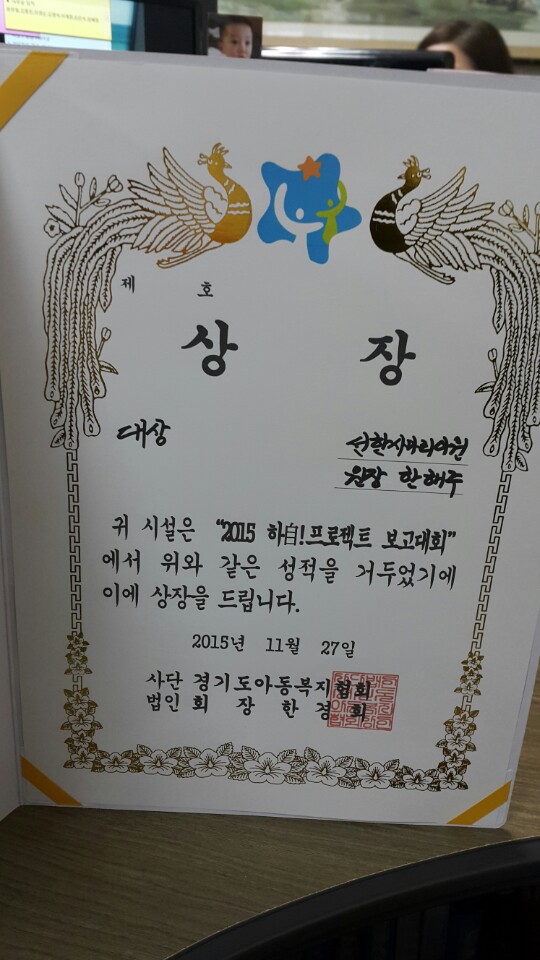 제 호
상 장
대상
선한사마리아원
원장 한해주
귀 시설은 “2015 하自!프로젝트 보고대회”
에서 위와 같은 성적을 거두었기에
이에 상장을 드립니다.
2015년 11월 27일
사단 경기도아동복지협회
법인 회 장 한 경 희